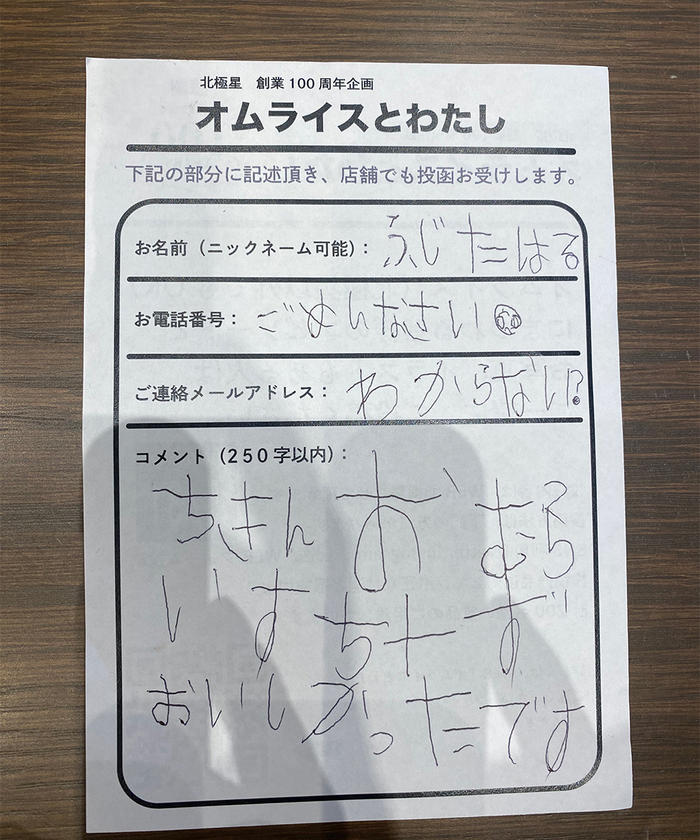 北極星 創業100周年企画
オムライスとわたし
下記の部分に記述頂き、店舗でも投函お受けします。
お名前（ニックネーム可能）：ふじたはる
お電話番号：ごめんなさい
ご連絡メールアドレス：わからない?
コメント（250字以内）：
ちきんお むら
いすち十ず
おいしかったです